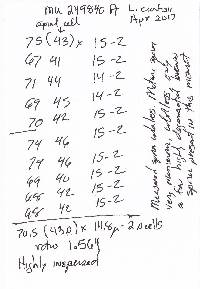 MU 249840 A L. curtisii
apical cell Apr 2017
75 (43) x 15-2
67 41 15-2
71 44 14-2
69 45 14-2
70 42 15-2
74 46 15-2
74 46 15-2
69 40 15-2
68 42 15-2
68 42 15-2
70.5 (43.0) x 14.8 µ - 2 cells
ratio 1.564
Highly inspersed
Measured spores
very
highly degenerated
spores present in this mount